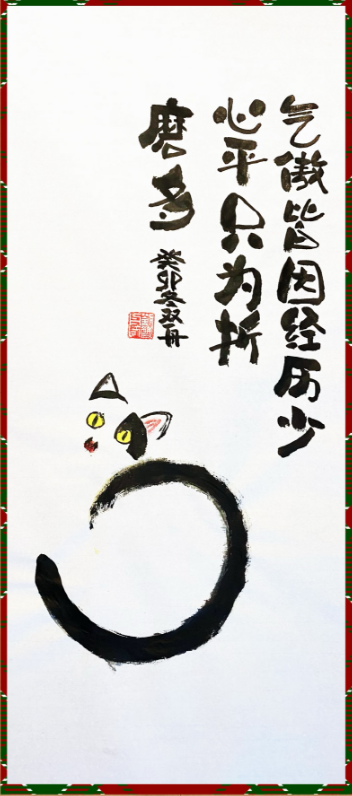 气傲皆因经历少
心平只为折
磨多
癸卯冬双舟